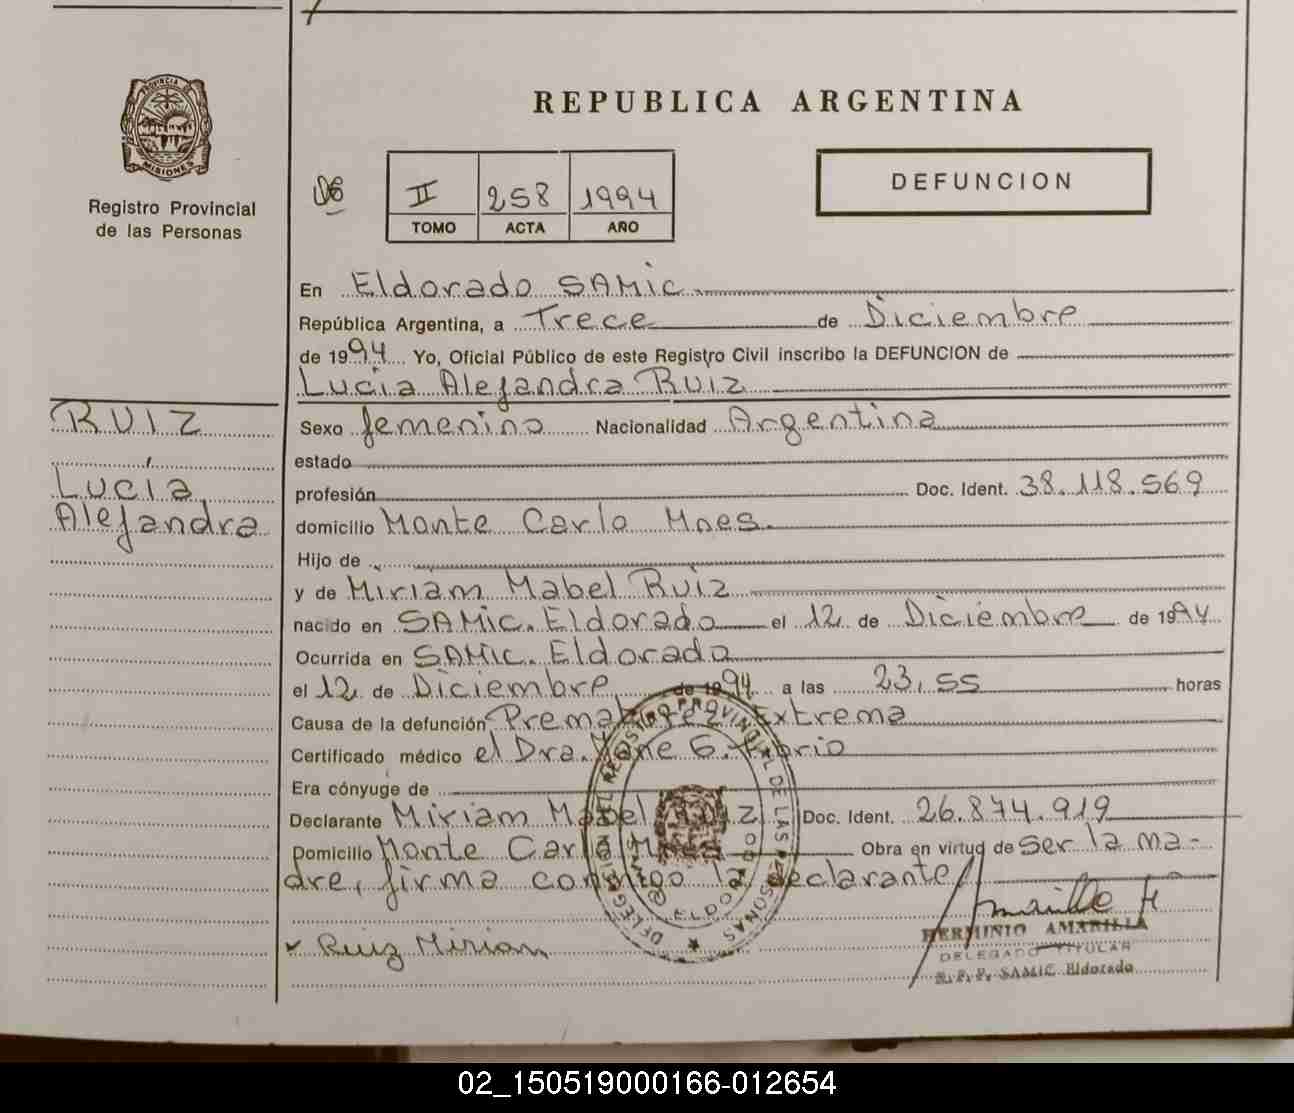 PROVINCIA DE
MISIONES
Registro Provincial
de las Personas
REPUBLICA ARGENTINA
II 258 1994
TOMO ACTA AÑO
DEFUNCION
En Eldorado SAMic
República Argentina, a Trece de Diciembre
de 1994 Yo, Oficial Público de este Registro Civil inscribo la DEFUNCION de
Lucia Alejandra Ruiz
RUIZ
Lucía
Alejandra
Sexo femenino Nacionalidad Argentina
estado
profesión Doc. Ident. 38.118.569
domicilio Monte Carlo Mnes.
Hijo de
y de Miriam Mabel Ruiz
nacido en SAMic. Eldorado el 12 de Diciembre de 1994
Ocurrida en SAMIC. Eldorado
el 12 de Diciembre de 1994 a las 23,55 horas
Causa de la defunción Prematurez Extrema
Certificado médico el Dra. G.
Era cónyuge de
Declarante Miriam Mabel Ruiz Doc. Ident. 26.874.919
Domicilio Monte Carlo Obra en virtud de ser la ma-
dre, firma conmigo la declarante
Ruiz Miriam
DELEGACION DEL REGISTRO PROVINCIAL DE LAS PERSONAS
ELDORADO
HERMINIO AMARILLA
DELEGADO TITULAR
R. P. P. SAMIC Eldorado
02_150519000166-012654